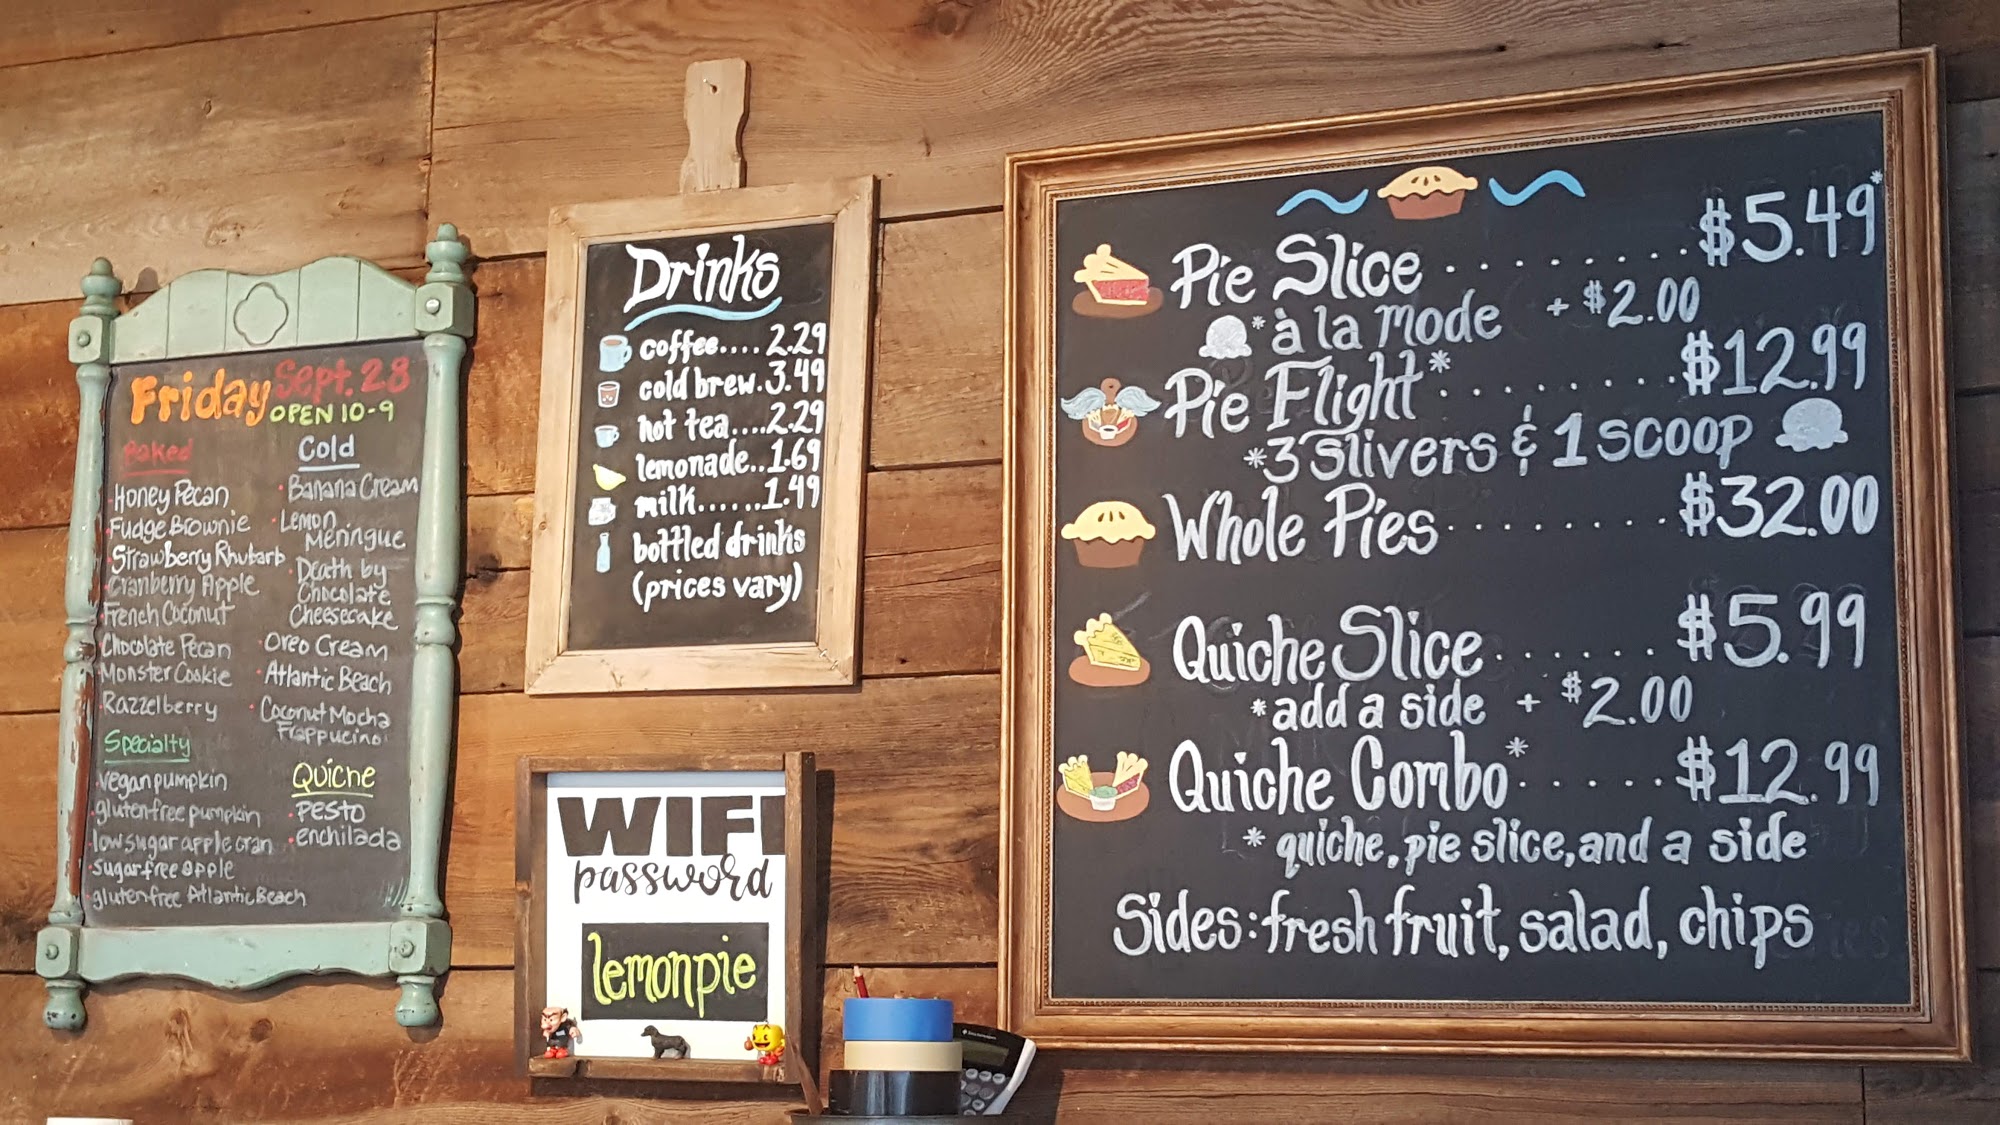 Friday Sept. 28
OPEN 10-9
Baked
Honey Pecan
Fudge Brownie
Strawberry Rhubarb
Cranberry Apple
French Coconut
Chocolate Pecan
Monster Cookie
Razzelberry
Specialty
vegan pumpkin
gluten free pumpkin
low sugar apple cran
sugar free apple
gluten free Atlantic Beach
Cold
Banana Cream
Lemon
Meringue
Death by
Chocolate
Cheesecake
Oreo Cream
Atlantic Beach
Coconut Mocha
Frappucino
Quiche
PESTO
enchilada
Drinks
coffee.... 2.29
cold brew. 3.49
hot tea.... 2.29
lemonade.. 1.69
milk...... 1.49
bottled drinks
(prices vary)
WIFI
password
lemonpie
Pie Slice . . . . . . . . $5.49*
*à la mode + $2.00
Pie Flight* . . . . . . . . $12.99
*3 slivers & 1 scoop
Whole Pies . . . . . . . . $32.00
Quiche Slice . . . . . . $5.99
*add a side + $2.00
Quiche Combo* . . . . . $12.99
* quiche, pie slice, and a side
Sides: fresh fruit, salad, chips